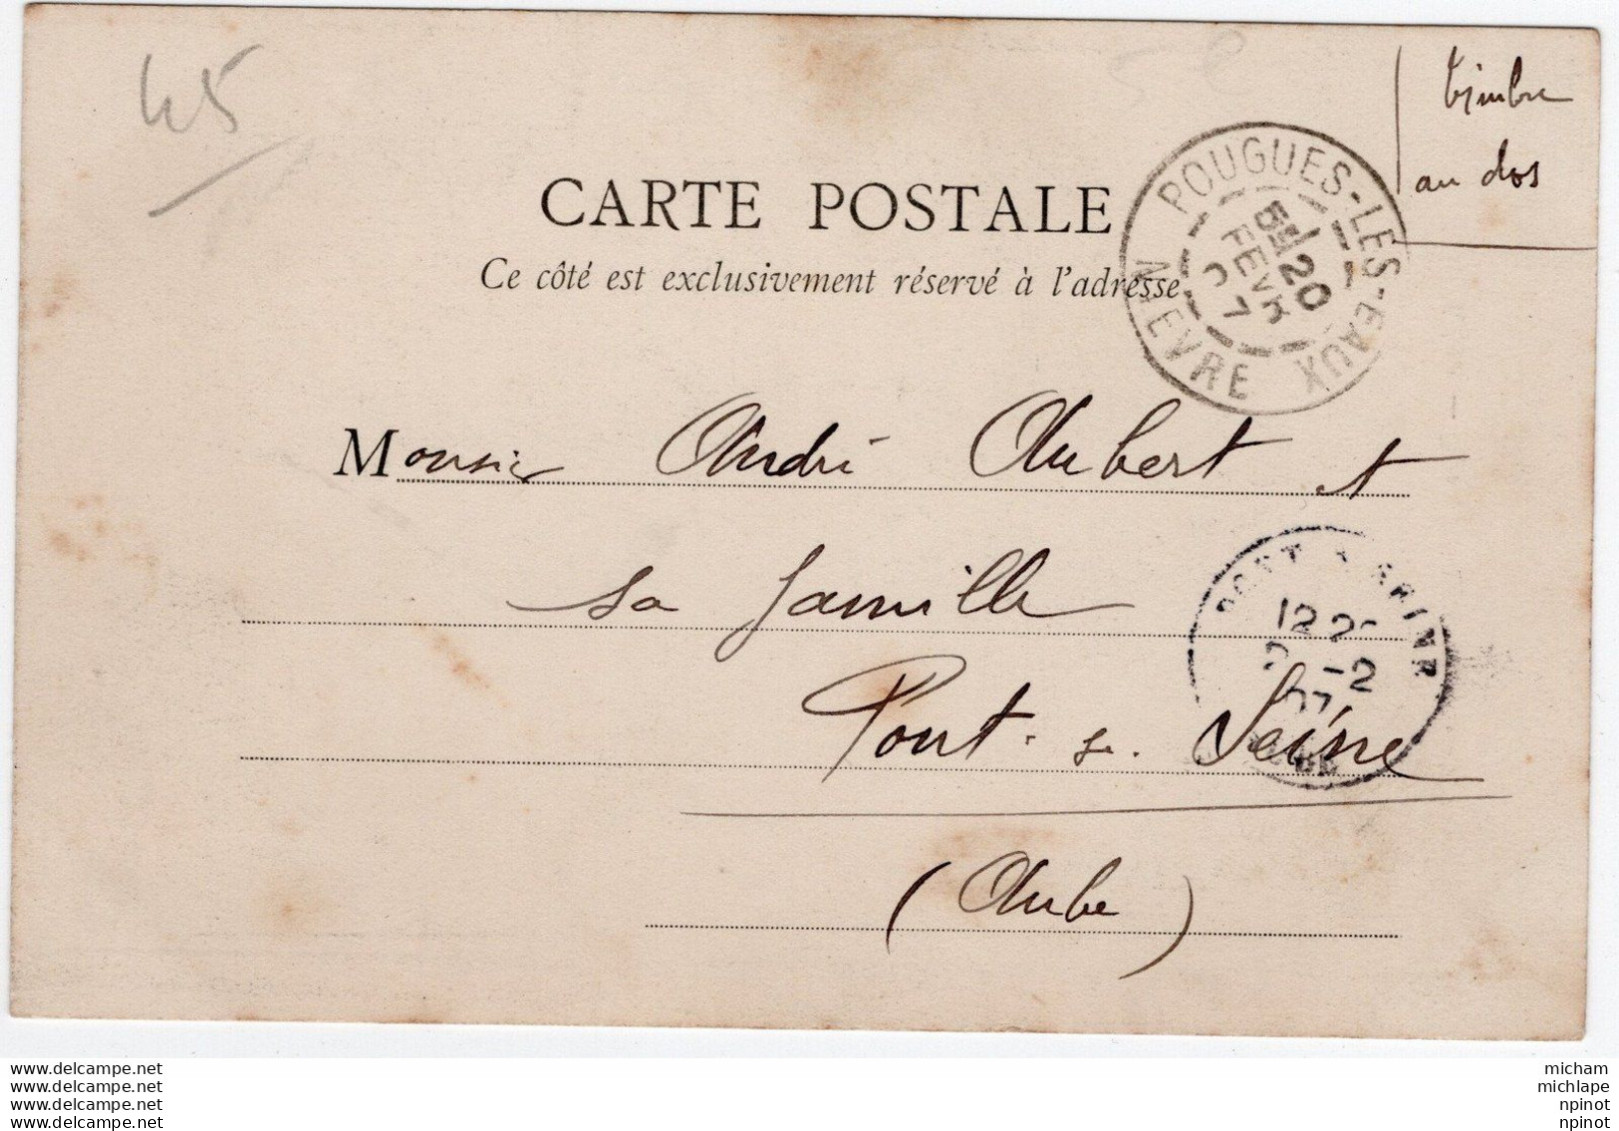 45
timbre
au dos
CARTE POSTALE
Ce côté est exclusivement réservé à l'adresse
POUGUES-LES-EAUX
5E 20
FEVR
07
NIEVRE
Monsieur André Aubert et
sa famille
Pont s. Seine
(Aube)
12
-2
07
www.delcampe.net
www.delcampe.net
www.delcampe.net
www.delcampe.net
micham
michlape
npinot
npinot